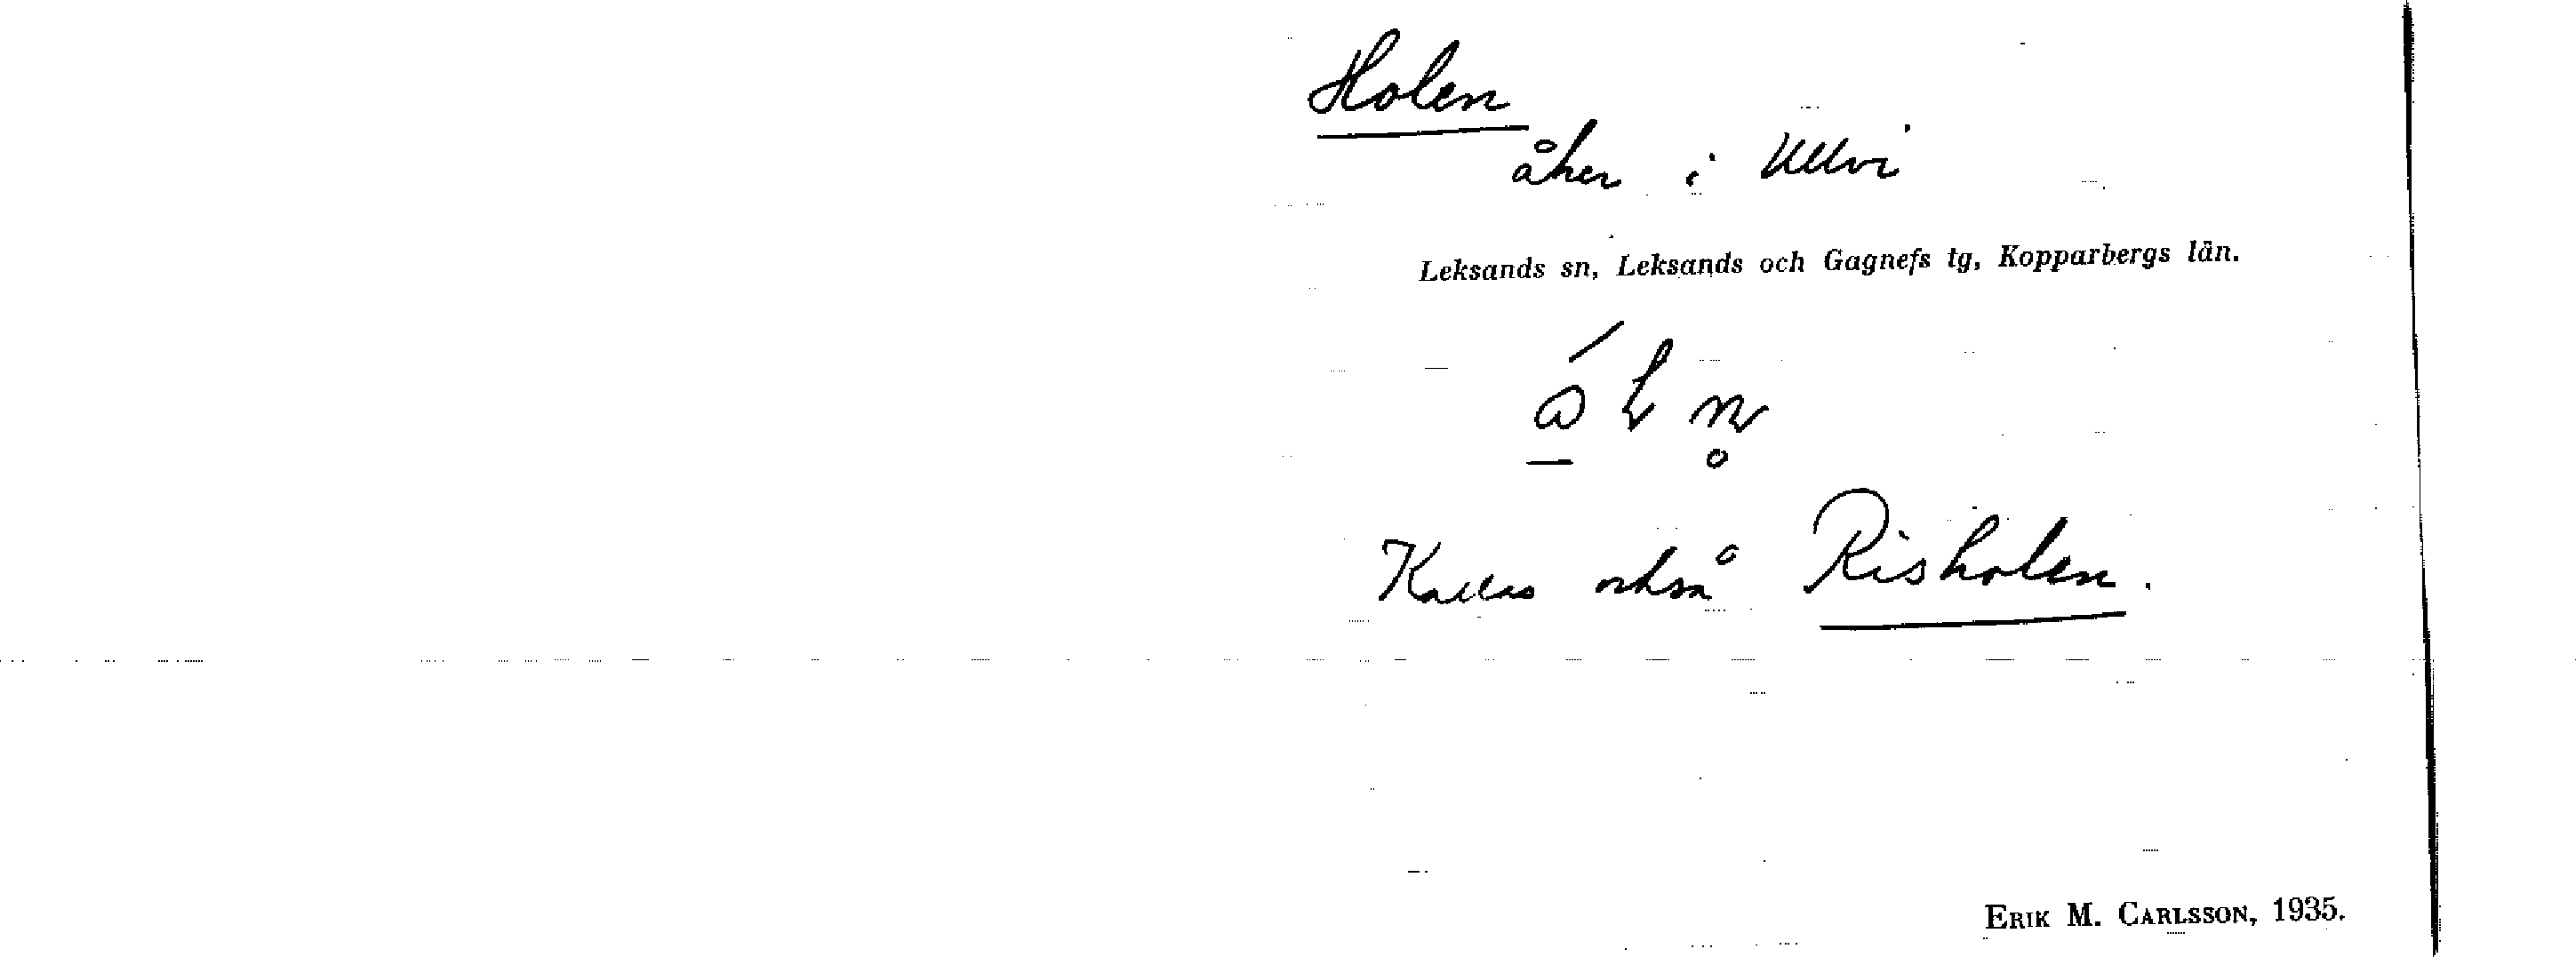 Holen
åker i Ullvi
Leksands sn, Leksands och Gagnefs tg, Kopparbergs län.
Kallas också Risholen.
ERIK M. CARLSSON, 1935.